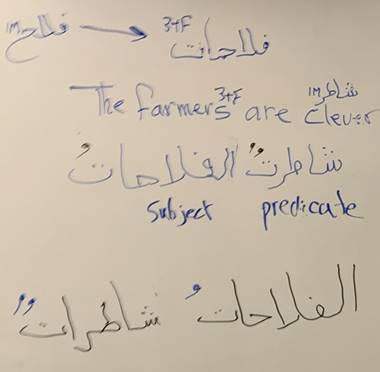 1M فلاح → 3+F فلاحات
3+F 1M شاطر
The farmers are clever
شاطرتٌ الفلاحاتُ
Subject predicate
الفلاحاتُ شاطراتٌ